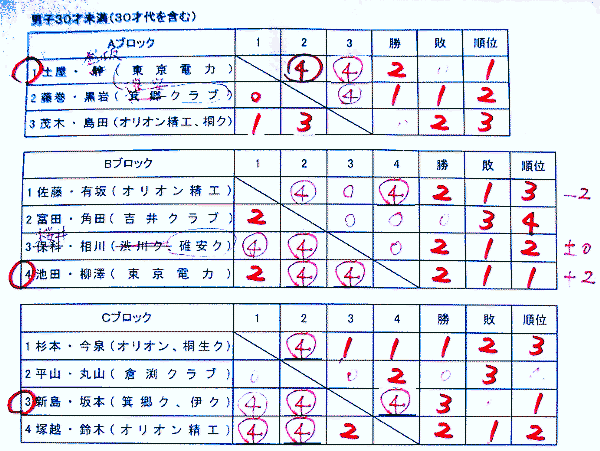 男子30才未満(30才代を含む)
Aブロック 1 2 3 勝 敗 順位
1 土屋・ (東京電力) ④ ④ 2 0 1
2 藤巻・黒岩(箕郷クラブ) 0 ④ 1 1 2
3 茂木・島田(オリオン精工、桐ク) 1 3 0 2 3
Bブロック 1 2 3 4 勝 敗 順位
1 佐藤・有坂(オリオン精工) ④ 0 ④ 2 1 3 −2
2 富田・角田(吉井クラブ) 2 0 0 0 3 4
3 保科・相川(渋川ク、碓安ク) ④ ④ 0 2 1 2 ±0
4 池田・柳澤(東京電力) 2 ④ ④ 2 1 1 +2
Cブロック 1 2 3 4 勝 敗 順位
1 杉本・今泉(オリオン、桐生ク) ④ 1 1 1 2 3
2 平山・丸山(倉渕クラブ) 0 0 2 0 3
3 新島・坂本(箕郷ク、伊ク) ④ ④ ④ 3 0 1
4 塚越・鈴木(オリオン精工) ④ ④ 2 2 1 2